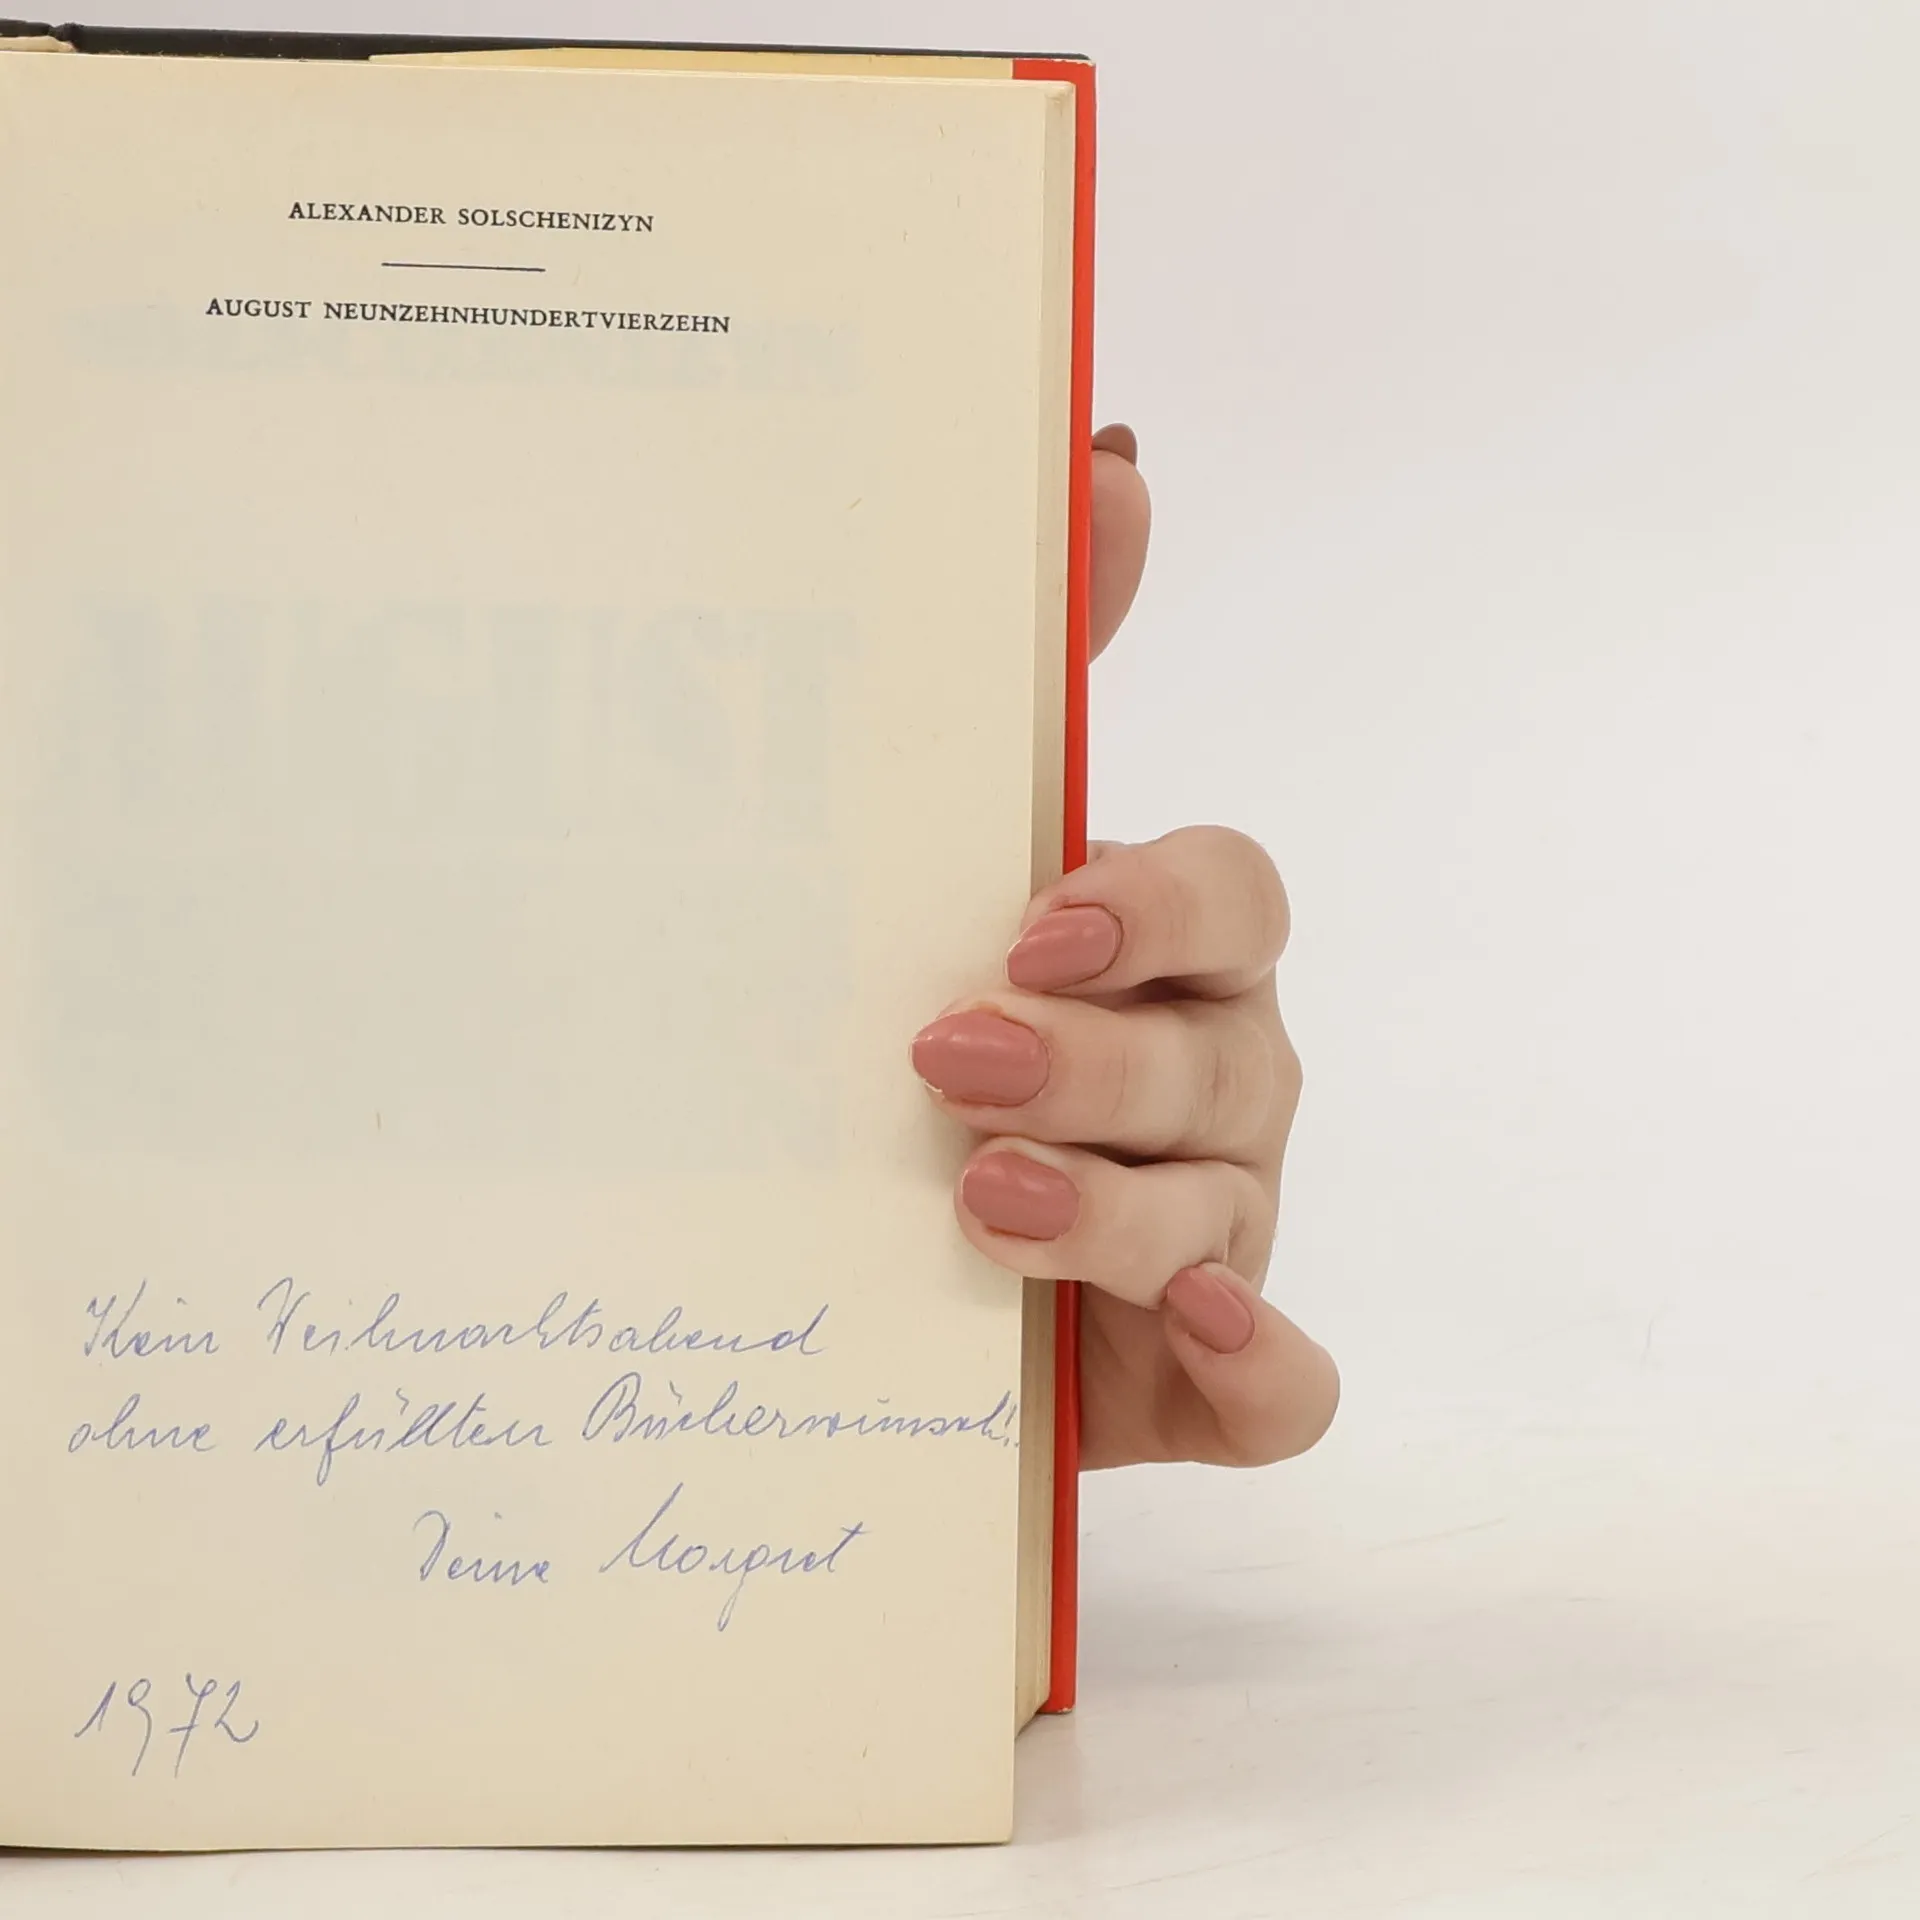 ALEXANDER SOLSCHENIZYN
AUGUST NEUNZEHNHUNDERTVIERZEHN
Kein Weihnachtsabend
ohne erfüllten Bücherwunsch!
Deine Margret
1972